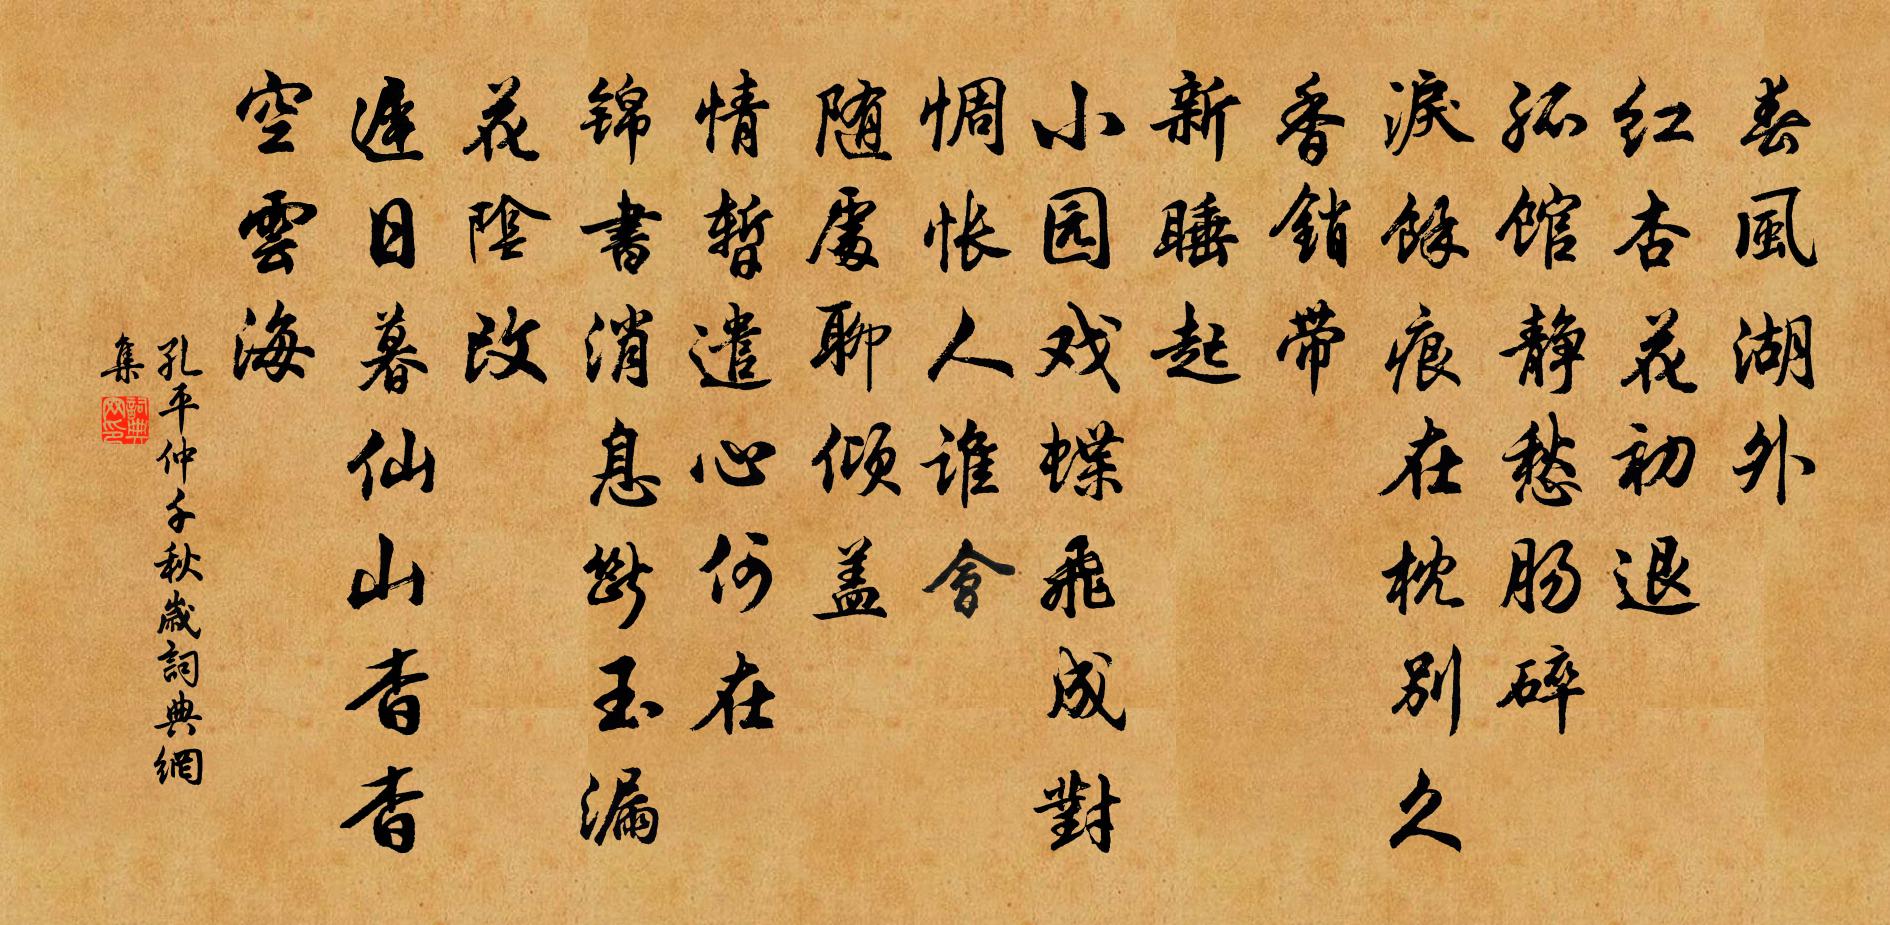 春風湖外
红杏花初退
孤馆静愁肠碎
淚餘痕在枕别久
香銷带
新睡起
小园戏蝶飛成對
惆怅人谁會
随處聊倾盖
情暫遣心何在
锦書消息斷玉漏
花陰改
遲日暮仙山杳杳
空雲海
孔平仲千秋歲詞典網
集
詞典网印